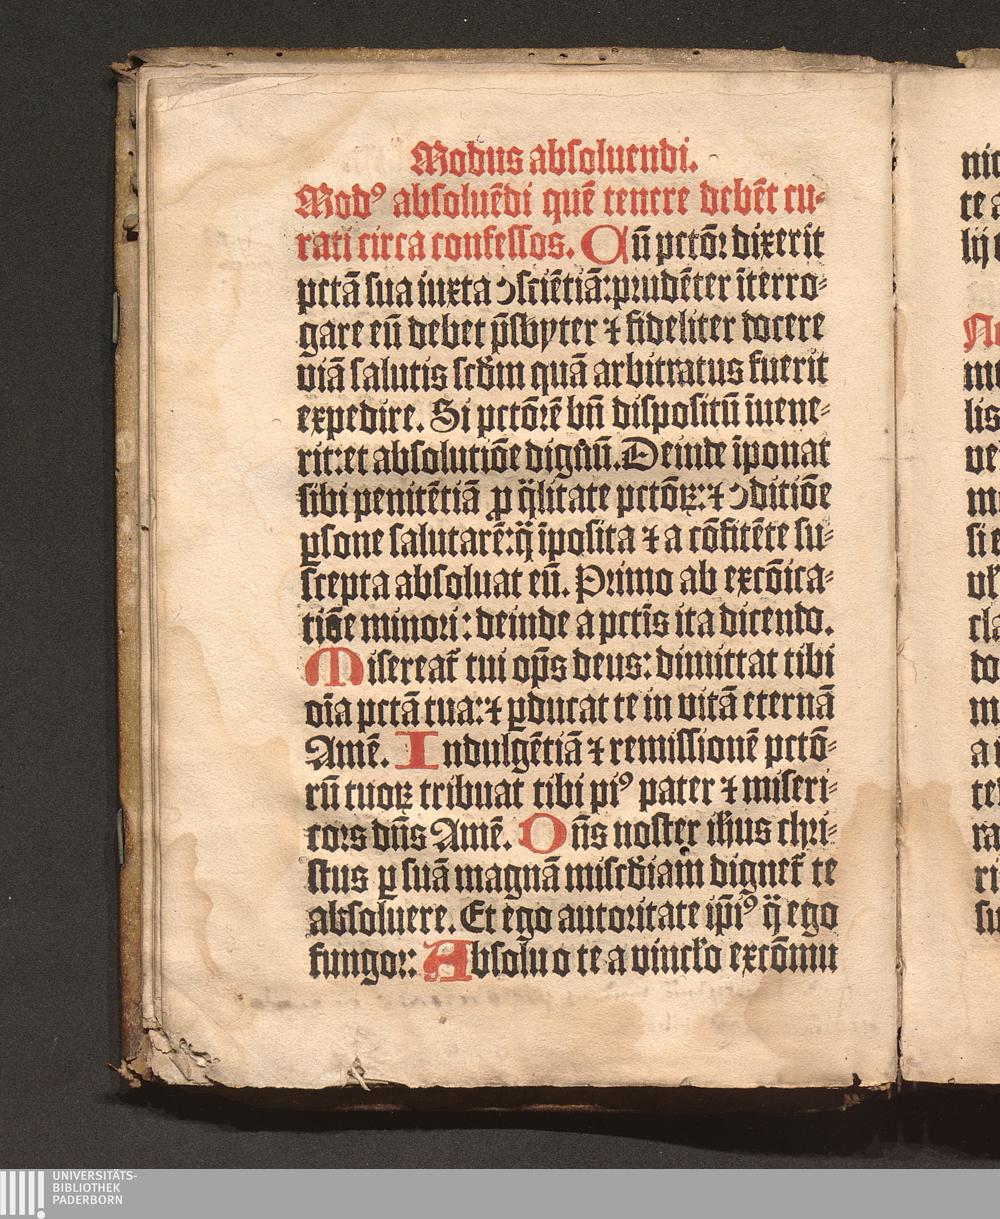 Modus absoluendi.
Modꝰ absoluēdi quē tenere debēt cu-
rati circa confessos. Cū pctōꝛ dixerit
pctā sua iuxta ꝯsciētiā: prudēter īterro-
gare eū debet p̄sbyter ⁊ fideliter docere
viā salutis scđm quā arbitratus fuerit
expedire. Si pctōꝛē bn̄ dispositū īuene-
rit: et absolutiōe dignū. Deinde īponat
sibi penitētiā ꝓ q̄litate pctōꝝ: ⁊ ꝯditiōe
ꝑsone salutarē: q̄ īposita ⁊ a cōfitēte su-
scepta absoluat eū. Primo ab excōica-
tiōe minori: deinde a pctīs ita dicendo.
Misereat᷑ tui op̄s deus: dimittat tibi
oīa pctā tua: ⁊ ꝑducat te in vitā eternā
Amē. Indulgētiā ⁊ remissionē pctō-
rū tuoꝝ tribuat tibi piꝰ pater ⁊ miseri-
coꝛs dn̄s Amē. Dn̄s noster iħus chri-
stus ꝑ suā magnā misc̄diam dignet᷑ te
absoluere. Et ego autoꝛitate ip̄iꝰ q̄ ego
fungoꝛ: Absoluo te a vincl̓o excōmu
nic
te a
lij
mu
lis
ve
m
si
vl̓
cla
do
m
a i
te
ra
ri
su
UNIVERSITÄTS-
BIBLIOTHEK
PADERBORN